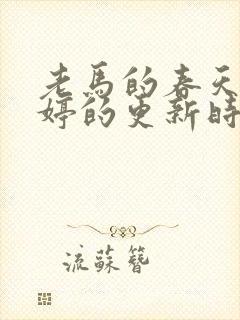 老馬的春天
婷的更新時
流蘇簪